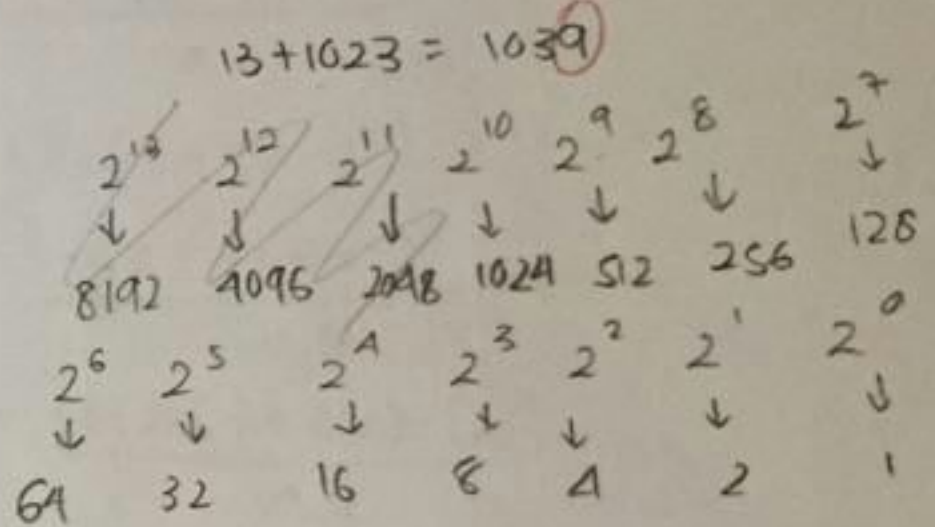 13+1023 = 1039
2¹³ 2¹² 2¹¹ 2¹⁰ 2⁹ 2⁸ 2⁷
↓ ↓ ↓ ↓ ↓ ↓ ↓
8192 4096 2048 1024 512 256 128
2⁶ 2⁵ 2⁴ 2³ 2² 2¹ 2⁰
↓ ↓ ↓ ↓ ↓ ↓ ↓
64 32 16 8 4 2 1